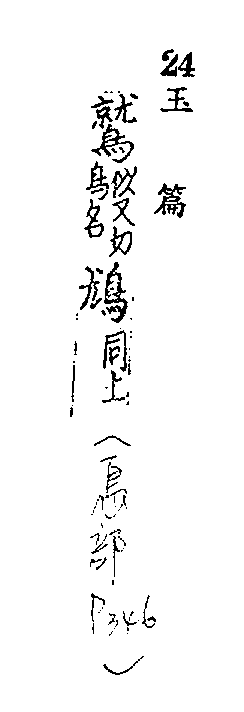 24 玉篇
鷲似又切鳥名同上(鳥部P346)